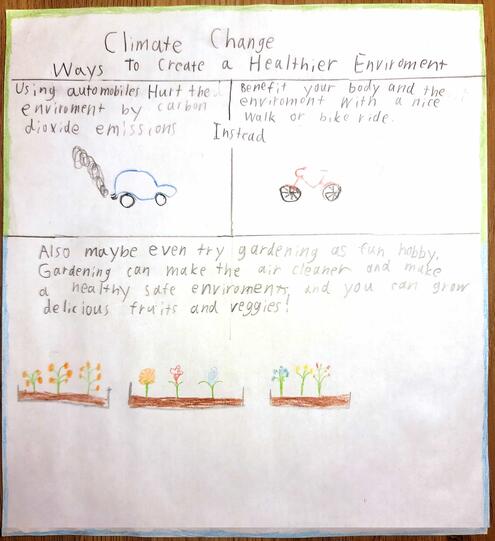 Climate Change
Ways to Create a Healthier Enviroment
Using automobiles Hurt the
enviroment by carbon
dioxide emissions
Benefit your body and the
enviroment with a nice
walk or bike ride.
Instead
Also maybe even try gardening as fun hobby.
Gardening can make the air cleaner and make
a healthy safe enviroments, and you can grow
delicious fruits and veggies!